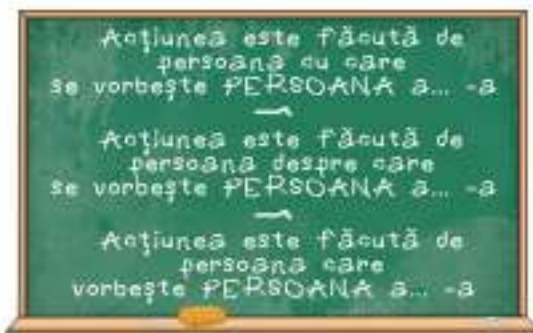 Acţiunea este făcută de
persoana cu care
se vorbeşte PERSOANA a... -a
Acţiunea este făcută de
persoana despre care
se vorbeşte PERSOANA a... -a
Acţiunea este făcută de
persoana care
vorbeşte PERSOANA a... -a